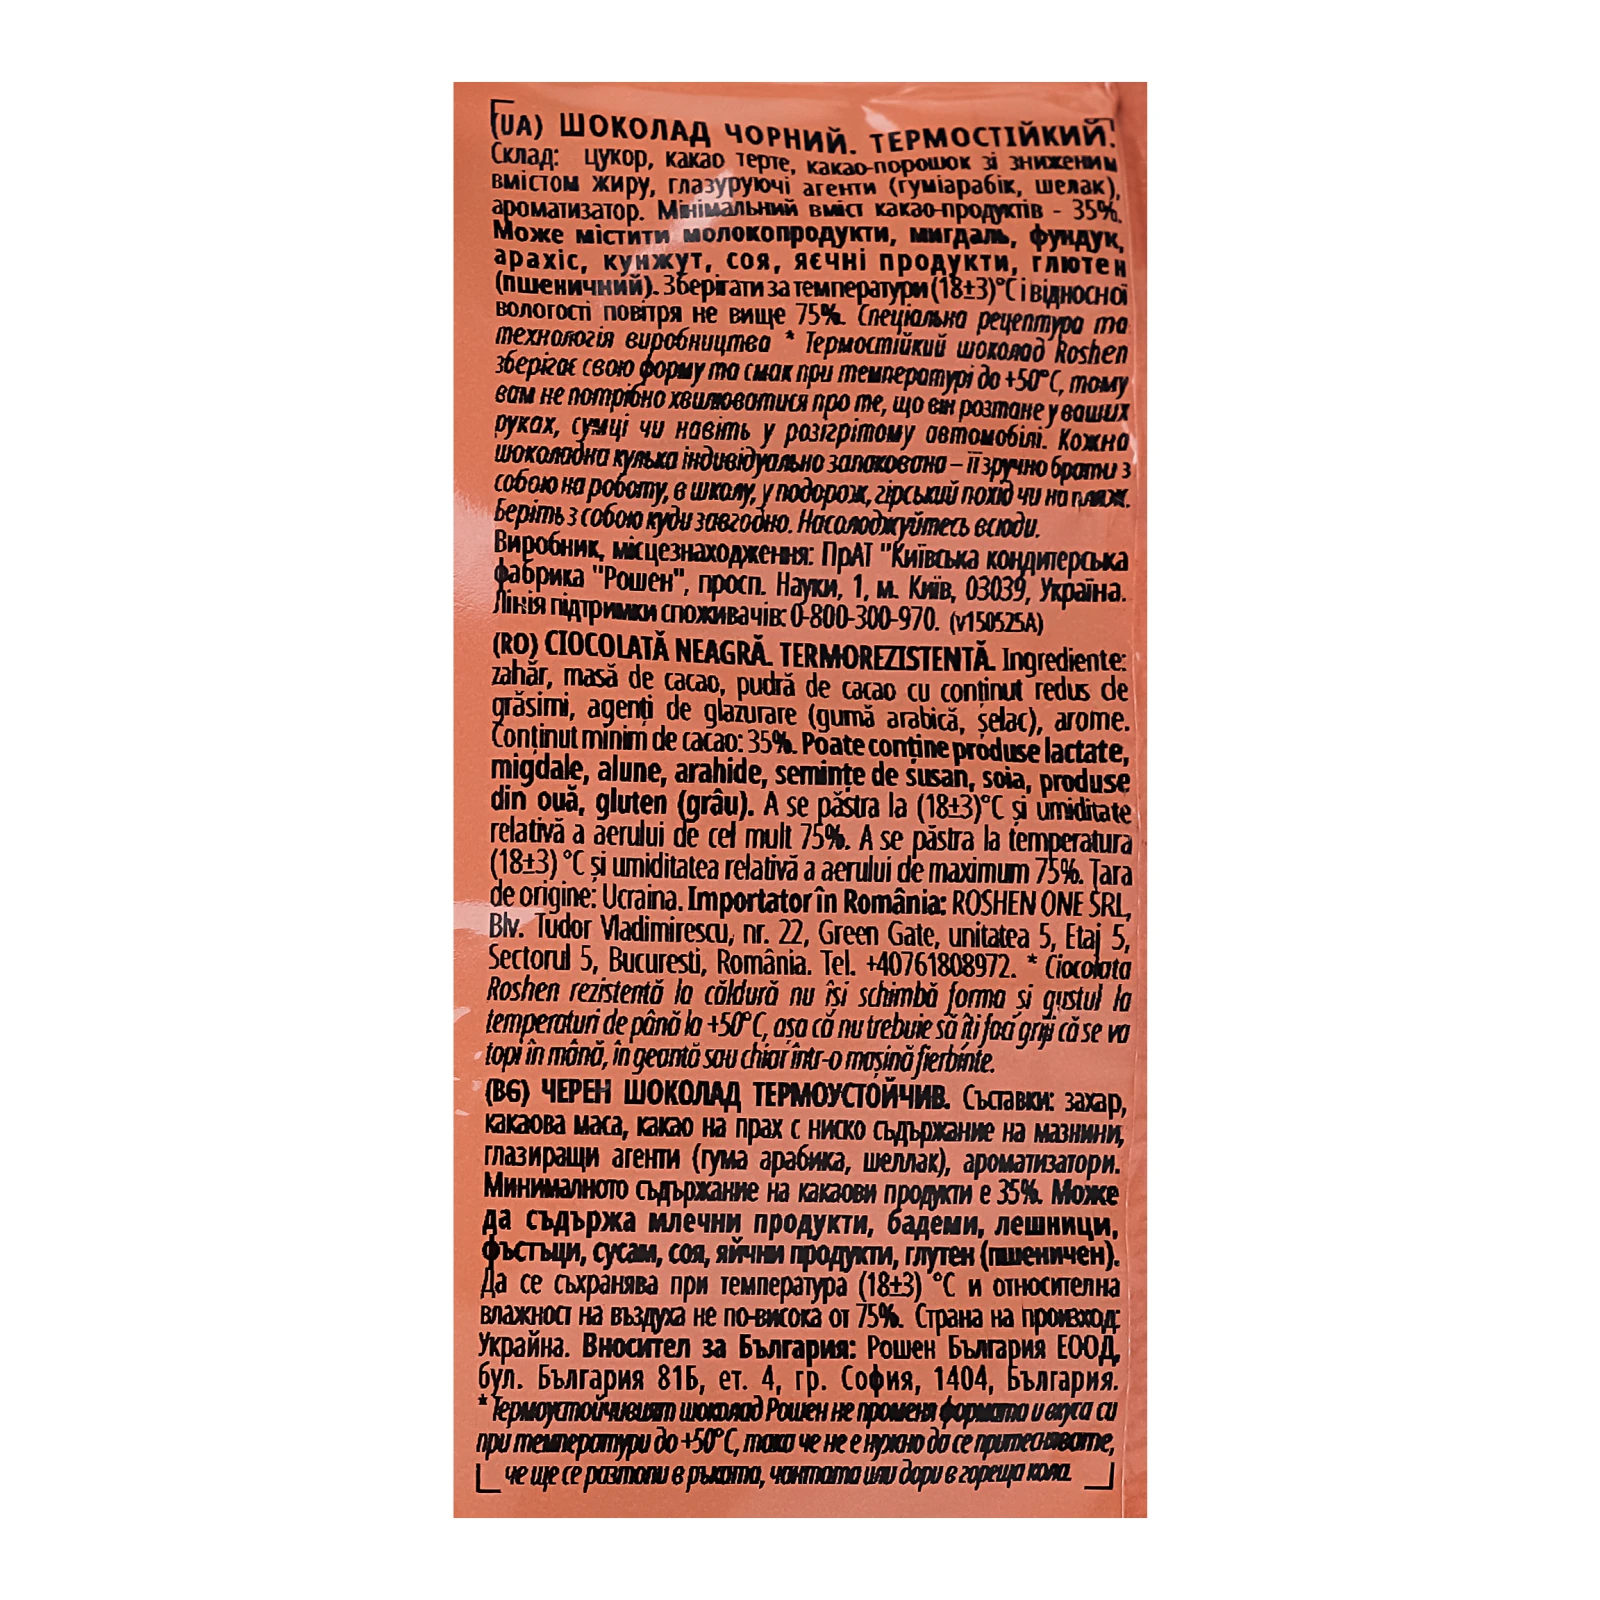 (UA) ШОКОЛАД ЧОРНИЙ. ТЕРМОСТІЙКИЙ.
Склад: цукор, какао терте, какао-порошок зі зниженим
вмістом жиру, глазуруючі агенти (гуміарабік, шелак),
ароматизатор. Мінімальний вміст какао-продуктів - 35%.
Може містити молокопродукти, мигдаль, фундук,
арахіс, кунжут, соя, яєчні продукти, глютен
(пшеничний). Зберігати за температури (18±3)°С і відносної
вологості повітря не вище 75%. Спеціальна рецептура та
технологія виробництва * Термостійкий шоколад Roshen
зберігає свою форму та смак при температурі до +50°С, тому
вам не потрібно хвилюватися про те, що він розтане у ваших
руках, сумці чи навіть у розігрітому автомобілі. Кожна
шоколадна кулька індивідуально запакована – її зручно брати з
собою на роботу, в школу, у подорож, гірський похід чи на пляж.
Беріть з собою куди завгодно. Насолоджуйтесь всюди.
Виробник, місцезнаходження: ПрАТ "Київська кондитерська
фабрика "Рошен", просп. Науки, 1, м. Київ, 03039, Україна.
Лінія підтримки споживачів: 0-800-300-970. (v150525A)
(RO) CIOCOLATĂ NEAGRĂ. TERMOREZISTENTĂ. Ingrediente:
zahăr, masă de cacao, pudră de cacao cu conținut redus de
grăsimi, agenți de glazurare (gumă arabică, șelac), arome.
Conținut minim de cacao: 35%. Poate conține produse lactate,
migdale, alune, arahide, semințe de susan, soia, produse
din ouă, gluten (grâu). A se păstra la (18±3)°C și umiditate
relativă a aerului de cel mult 75%. A se păstra la temperatura
(18±3) °C și umiditatea relativă a aerului de maximum 75%. Țara
de origine: Ucraina. Importator în România: ROSHEN ONE SRL,
Blv. Tudor Vladimirescu, nr. 22, Green Gate, unitatea 5, Etaj 5,
Sectorul 5, Bucuresti, România. Tel. +40761808972. * Ciocolata
Roshen rezistentă la căldură nu își schimbă forma și gustul la
temperaturi de până la +50°C, așa că nu trebuie să îți faci griji că se va
topi în mână, în geantă sau chiar într-o mașină fierbinte.
(BG) ЧЕРЕН ШОКОЛАД ТЕРМОУСТОЙЧИВ. Съставки: захар,
какаова маса, какао на прах с ниско съдържание на мазнини,
глазиращи агенти (гума арабика, шеллак), ароматизатори.
Минималното съдържание на какаови продукти е 35%. Може
да съдържа млечни продукти, бадеми, лешници,
фъстъци, сусам, соя, яйчни продукти, глутен (пшеничен).
Да се съхранява при температура (18±3) °С и относителна
влажност на въздуха не по-висока от 75%. Страна на произход:
Украйна. Вносител за България: Рошен България ЕООД,
бул. България 81Б, ет. 4, гр. София, 1404, България.
* Термоустойчивият шоколад Рошен не променя формата и вкуса си
при температури до +50°С, така че не е нужно да се притеснявате,
че ще се разтопи в ръката, чантата или дори в гореща кола.